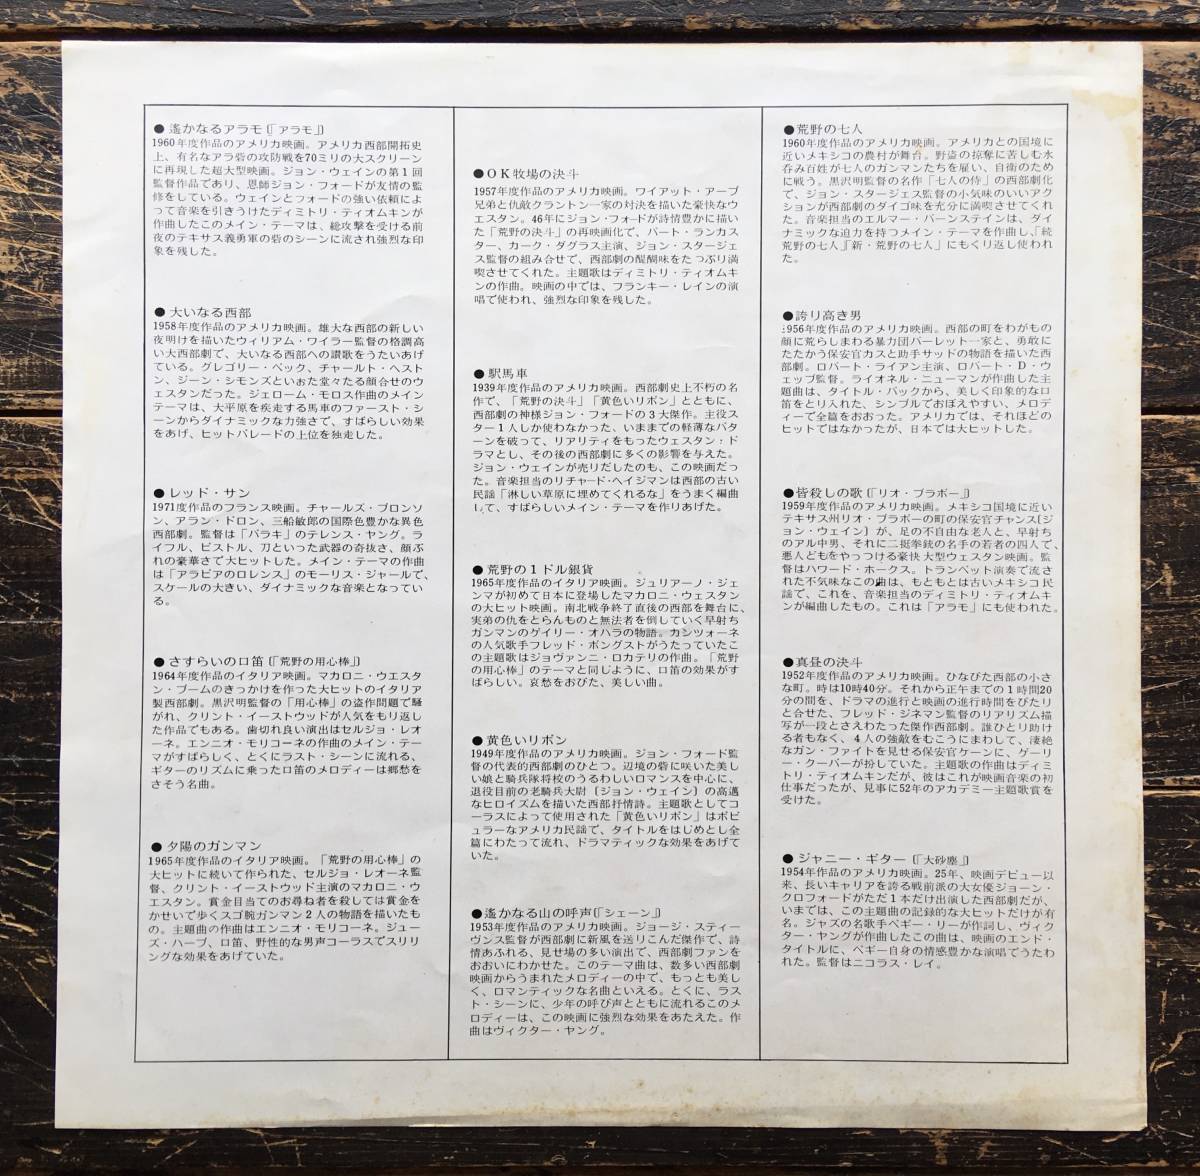 ●遙かなるアラモ〔「アラモ」〕
1960年度作品のアメリカ映画。アメリカ西部開拓史
上、有名なアラ砦の攻防戦を70ミリの大スクリーン
に再現した超大型映画。ジョン・ウェインの第1回
監督作品であり、恩師ジョン・フォードが友情の監
修をしている。ウェインとフォードの強い依頼によ
って音楽を引きうけたディミトリ・ティオムキンが
作曲したこのメイン・テーマは、総攻撃を受ける前
夜のテキサス義勇軍の砦のシーンに流され強烈な印
象を残した。
●大いなる西部
1958年度作品のアメリカ映画。雄大な西部の新しい
夜明けを描いたウィリアム・ワイラー監督の格調高
い大西部劇で、大いなる西部への讃歌をうたいあげ
ている。グレゴリー・ペック、チャールト・ヘスト
ン、ジーン・シモンズといおた堂々たる顔合せのウ
エスタンだった。ジェローム・モロス作曲のメイン
テーマは、大平原を疾走する馬車のファースト・シ
ーンからダイナミックな力強さで、すばらしい効果
をあげ、ヒットパレードの上位を独走した。
●レッド・サン
1971年度作品のフランス映画。チャールズ・ブロンソ
ン、アラン・ドロン、三船敏郎の国際色豊かな異色
西部劇。監督は「バラキ」のテレンス・ヤング。ラ
イフル、ピストル、刀といった武器の奇抜さ、顔ぶ
れの豪華さで大ヒットした。メイン・テーマの作曲
は「アラビアのロレンス」のモーリス・ジャールで、
スケールの大きい、ダイナミックな音楽となってい
る。
●さすらいの口笛〔「荒野の用心棒」〕
1964年度作品のイタリア映画。マカロニ・ウエスタ
ン・ブームのきっかけを作った大ヒットのイタリア
製西部劇。黒沢明監督の「用心棒」の盗作問題で騒
がれ、クリント・イーストウッドが人気をもり返し
た作品でもある。歯切れ良い演出はセルジョ・レオ
ーネ。エンニオ・モリコーネの作曲のメイン・テー
マがすばらしく、とくにラスト・シーンに流れる、
ギターのリズムに乗った口笛のメロディーは郷愁を
さそう名曲。
●夕陽のガンマン
1965年度作品のイタリア映画。「荒野の用心棒」の
大ヒットに続いて作られた、セルジョ・レオーネ監
督、クリント・イーストウッド主演のマカロニ・ウ
エスタン。賞金目当てのお尋ね者を殺しては賞金を
かせいで歩くスゴ腕ガンマン2人の物語を描いたも
の。主題曲の作曲はエンニオ・モリコーネ。ジュー
ズ・ハープ、口笛、野性的な男声コーラスでスリリ
ングな効果をあげていた。
●OK牧場の決斗
1957年度作品のアメリカ映画。ワイアット・アープ
兄弟と仇敵クラントン一家の対決を描いた豪快なウ
エスタン。46年にジョン・フォードが詩情豊かに描い
た「荒野の決斗」の再映画化で、バート・ランカス
ター、カーク・ダグラス主演、ジョン・スタージェ
ス監督の組み合せで、西部劇の醍醐味をたっぷり満
喫させてくれた。主題歌はディミトリ・ティオムキ
ンの作曲。映画の中では、フランキー・レインの演
唱で使われ、強烈な印象を残した。
●駅馬車
1939年度作品のアメリカ映画。西部劇史上不朽の名
作で、「荒野の決斗」「黄色いリボン」とともに、
西部劇の神様ジョン・フォードの3大傑作。主役ス
ター1人しか使わなかった、いままでの軽薄なパタ
ーンを破って、リアリティをもったウェスタン・ド
ラマとし、その後の西部劇に多くの影響を与えた。
ジョン・ウェインが売りだしたのも、この映画だっ
た。音楽担当のリチャード・ヘイジマンは西部の古い
民謡「淋しい草原に埋めてくれるな」をうまく編曲
して、すばらしいメイン・テーマを作りあげた。
●荒野の1ドル銀貨
1965年度作品のイタリア映画。ジュリアーノ・ジェ
ンマが初めて日本に登場したマカロニ・ウェスタン
の大ヒット映画。南北戦争終了直後の西部を舞台に、
実弟の仇をとらんものと無法者を倒していく早射ち
ガンマンのゲイリー・オハラの物語。カンツォーネ
の人気歌手フレッド・ボングストがうたっていたこ
の主題歌はジョヴァンニ・ロカテリの作曲。「荒野
の用心棒」のテーマと同じように、口笛の効果がす
ばらしい。哀愁をおびた、美しい曲。
●黄色いリボン
1949年度作品のアメリカ映画。ジョン・フォード監
督の代表的西部劇のひとつ。辺境の砦に咲いた美し
い娘と騎兵隊将校のうるわしいロマンスを中心に、
退役目前の老騎兵大尉〔ジョン・ウェイン〕の高邁
なヒロイズムを描いた西部抒情詩。主題歌としてコ
ーラスによって使用された「黄色いリボン」はポピ
ュラーなアメリカ民謡で、タイトルをはじめとし全
篇にわたって流れ、ドラマティックな効果をあげて
いた。
●遙かなる山の呼声〔「シェーン」〕
1953年度作品のアメリカ映画。ジョージ・スティー
ヴンス監督が西部劇に新風を送りこんだ傑作で、詩
情あふれる、見せ場の多い演出で、西部劇ファンを
おおいにわかせた。このテーマ曲は、数多い西部劇
映画からうまれたメロディーの中で、もっとも美し
く、ロマンティックな名曲といえる。とくに、ラス
ト・シーンに、少年の呼び声とともに流れるこのメ
ロディーは、この映画に強烈な効果をあたえた。作
曲はヴィクター・ヤング。
●荒野の七人
1960年度作品のアメリカ映画。アメリカとの国境に
近いメキシコの農村が舞台。野盗の掠奪に苦しむ水
呑み百姓が七人のガンマンたちを雇い、自衛のため
に戦う。黒沢明監督の名作「七人の侍」の西部劇化
で、ジョン・スタージェス監督の小気味のいいアク
ションが西部劇のダイゴ味を充分に満喫させてくれ
た。音楽担当のエルマー・バーンステインは、ダイ
ナミックな迫力を持つメイン・テーマを作曲し、「続
荒野の七人」「新・荒野の七人」にもくり返し使われ
た。
●誇り高き男
1956年度作品のアメリカ映画。西部の町をわがもの
顔に荒らしまわる暴力団バーレット一家と、勇敢に
たたかう保安官カスと助手サッドの物語を描いた西
部劇。ロバート・ライアン主演、ロバート・D・ウ
ェッブ監督。ライオネル・ニューマンが作曲した主
題曲は、タイトル・バックから、美しく印象的な口
笛をとり入れた、シンプルでおぼえやすい、メロデ
ィーで全篇をおおった。アメリカでは、それほどの
ヒットではなかったが、日本では大ヒットした。
●皆殺しの歌〔「リオ・ブラボー」〕
1959年度作品のアメリカ映画。メキシコ国境に近い
テキサス州リオ・ブラボーの町の保安官チャンス〔ジ
ョン・ウェイン〕が、足の不自由な老人と、早射ち
のアル中男、それに二挺拳銃の名手の若者の四人で、
悪人どもをやっつける豪快大型ウェスタン映画。監
督はハワード・ホークス。トランペット演奏で流さ
れた不気味なこの曲は、もともとは古いメキシコ民
謡で、これを、音楽担当のディミトリ・ティオムキ
ンが編曲したもの。これは「アラモ」にも使われた。
●真昼の決斗
1952年度作品のアメリカ映画。ひなびた西部の小さ
な町。時は10時40分。それから正午までの1時間20
分の間を、ドラマの進行と映画の進行時間をぴたリ
と合せた、フレッド・ジネマン監督のリアリズム描
写が一段とさえわたった傑作西部劇。誰ひとり助け
る者もなく、4人の強敵をむこうにまわして、凄絶
なガン・ファイトを見せる保安官ケーンに、ゲーリ
ー・クーパーが扮していた。主題歌の作曲はディミ
トリ・ティオムキンだが、彼はこれが映画音楽の初
仕事だったが、見事に52年のアカデミー主題歌賞を
受けた。
●ジャニー・ギター〔「大砂塵」〕
1954年作品のアメリカ映画。25年、映画デビュー以
来、長いキャリアを誇る戦前派の大女優ジョーン・
クロフォードがただ1本だけ出演した西部劇だが、
いまでは、この主題曲の記録的な大ヒットだけが有
名。ジャズの名歌手ペギー・リーが作詞し、ヴィク
ター・ヤングが作曲したこの曲は、映画のエンド・
タイトルに、ペギー自身の情感豊かな演唱でうたわ
れた。監督はニコラス・レイ。